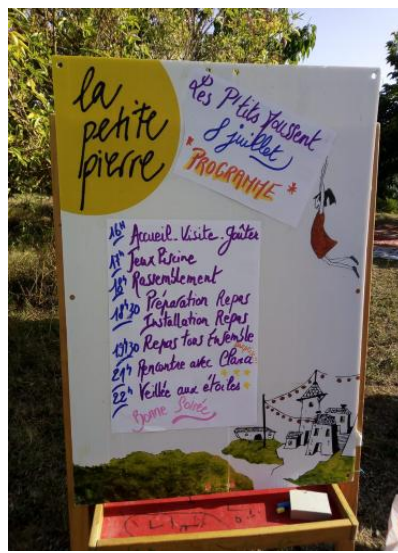 la
petite
pierre
Les P'tits Poussent
8 juillet
* PROGRAMME *
16H Accueil - Visite - Goûter
17H Jeux Piscine
18H Rassemblement
18H30 Préparation Repas
Installation Repas
19H30 Repas tous Ensemble
21H Rencontre avec Clara
22H Veillée aux étoiles
Bonne Soirée